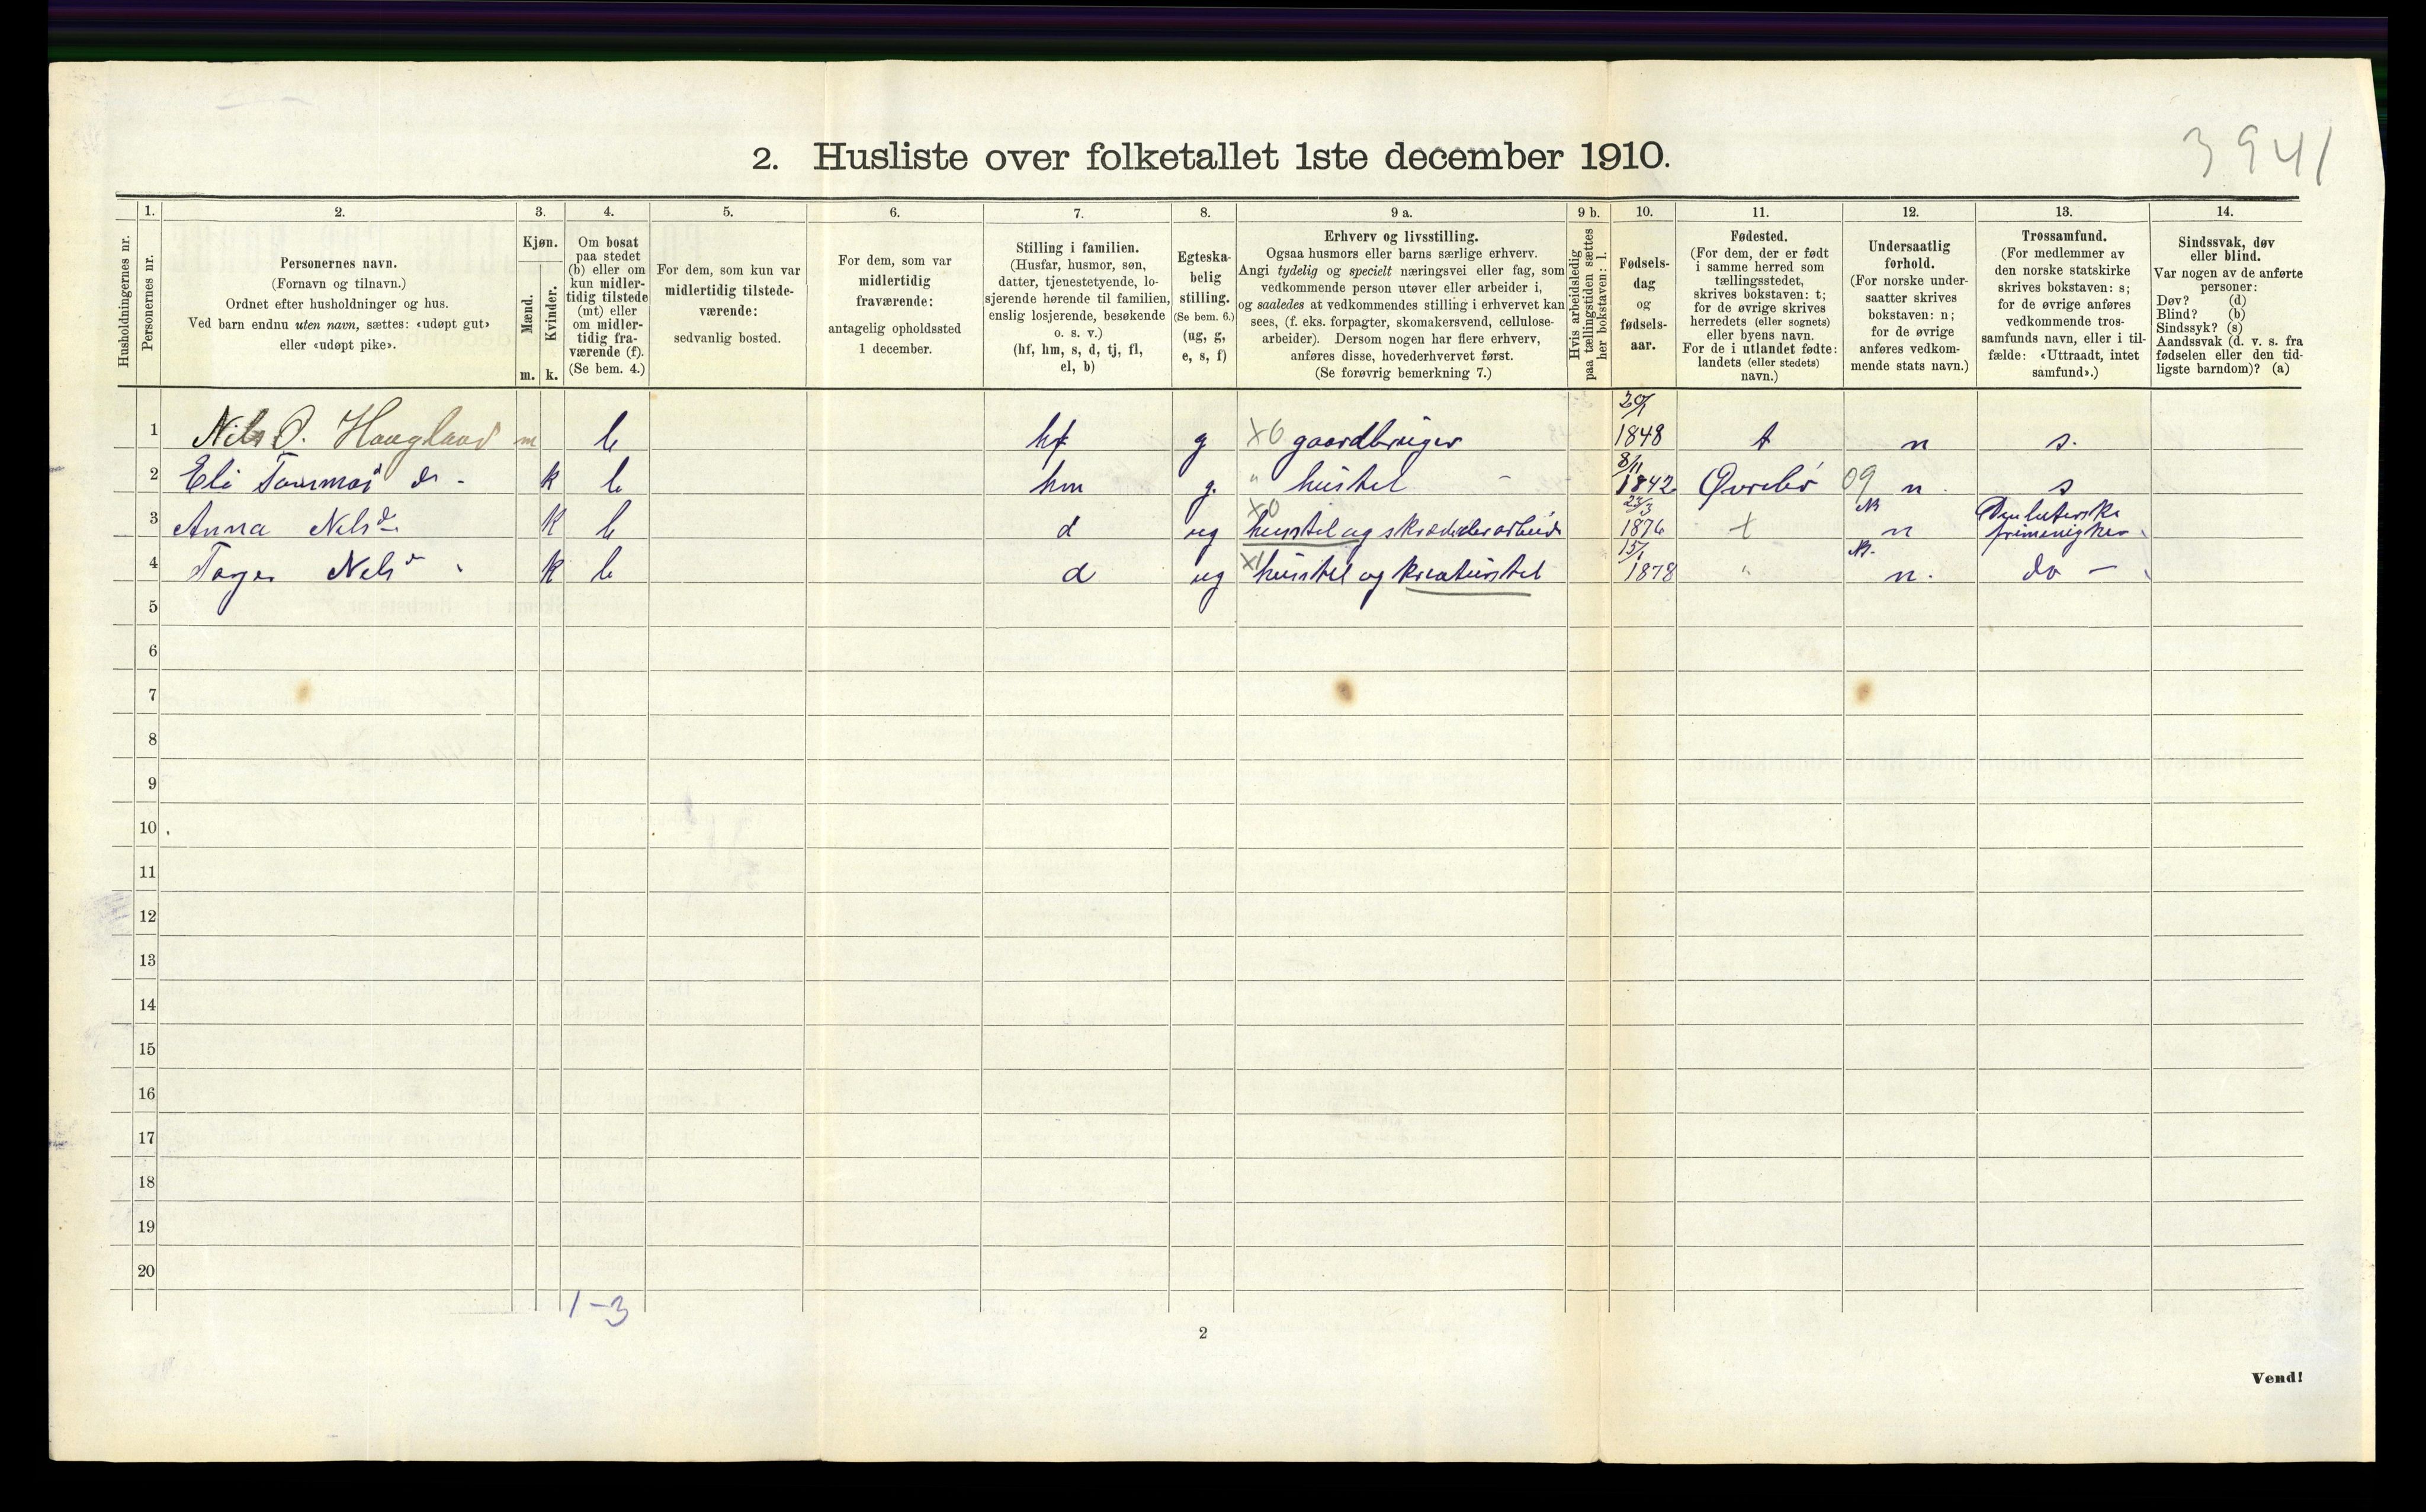 3941
2. Husliste over folketallet 1ste december 1910.
Husholdningernes nr.
1.
Personernes nr.
2.
Personernes navn.
(Fornavn og tilnavn.)
Ordnet efter husholdninger og hus.
Ved barn endnu uten navn, sættes: «udøpt gut»
eller «udøpt pike».
3.
Kjøn.
Mænd.
Kvinder.
m. k.
4.
Om bosat
paa stedet
(b) eller om
kun midler-
tidig tilstede
(mt) eller
om midler-
tidig fra-
værende (f).
(Se bem. 4.)
5.
For dem, som kun var
midlertidig tilstede-
værende:
sedvanlig bosted.
6.
For dem, som var
midlertidig
fraværende:
antagelig opholdssted
1 december.
7.
Stilling i familien.
(Husfar, husmor, søn,
datter, tjenestetyende, lo-
sjerende hørende til familien,
enslig losjerende, besøkende
o. s. v.)
(hf, hm, s, d, tj, fl,
el, b)
8.
Egteska-
belig
stilling.
(Se bem. 6.)
(ug, g,
e, s, f)
9 a.
Erhverv og livsstilling.
Ogsaa husmors eller barns særlige erhverv.
Angi tydelig og specielt næringsvei eller fag, som
vedkommende person utøver eller arbeider i,
og saaledes at vedkommendes stilling i erhvervet kan
sees, (f. eks. forpagter, skomakersvend, cellulose-
arbeider). Dersom nogen har flere erhverv,
anføres disse, hovederhvervet først.
(Se forøvrig bemerkning 7.)
9 b.
Hvis arbeidsledig
paa tællingstiden sættes
her bokstaven: l.
10.
Fødsels-
dag
og
fødsels-
aar.
11.
Fødested.
(For dem, der er født
i samme herred som
tællingsstedet,
skrives bokstaven: t;
for de øvrige skrives
herredets (eller sognets)
eller byens navn.
For de i utlandet fødte:
landets (eller stedets)
navn.)
12.
Undersaatlig
forhold.
(For norske under-
saatter skrives
bokstaven: n;
for de øvrige
anføres vedkom-
mende stats navn.)
13.
Trossamfund.
(For medlemmer av
den norske statskirke
skrives bokstaven: s;
for de øvrige anføres
vedkommende tros-
samfunds navn, eller i til-
fælde: «Uttraadt, intet
samfund».)
14.
Sindssvak, døv
eller blind.
Var nogen av de anførte
personer:
Døv? (d)
Blind? (b)
Sindssyk? (s)
Aandssvak (d. v. s. fra
fødselen eller den tid-
ligste barndom)? (a)
1 Nils O. Haugland m b hf g X0 gaardbruger 1848 t n s.
2 Eli Tommas d. k b hm g. " hustel - 8/11 1842 Øvrebø 09 n. s
3 Anna Nelsd. k b d ug X0 hustel og skrædderarbeid 23/3 1876 t n Den luterske frimenigker
4 Nelsd k b d ug X1 hustel og kreaturstel 15/1 1878 " n. do —
5
6
7
8
9
10
11
12
13
14
15
16
17
18
19
20
1-3
2
Vend!